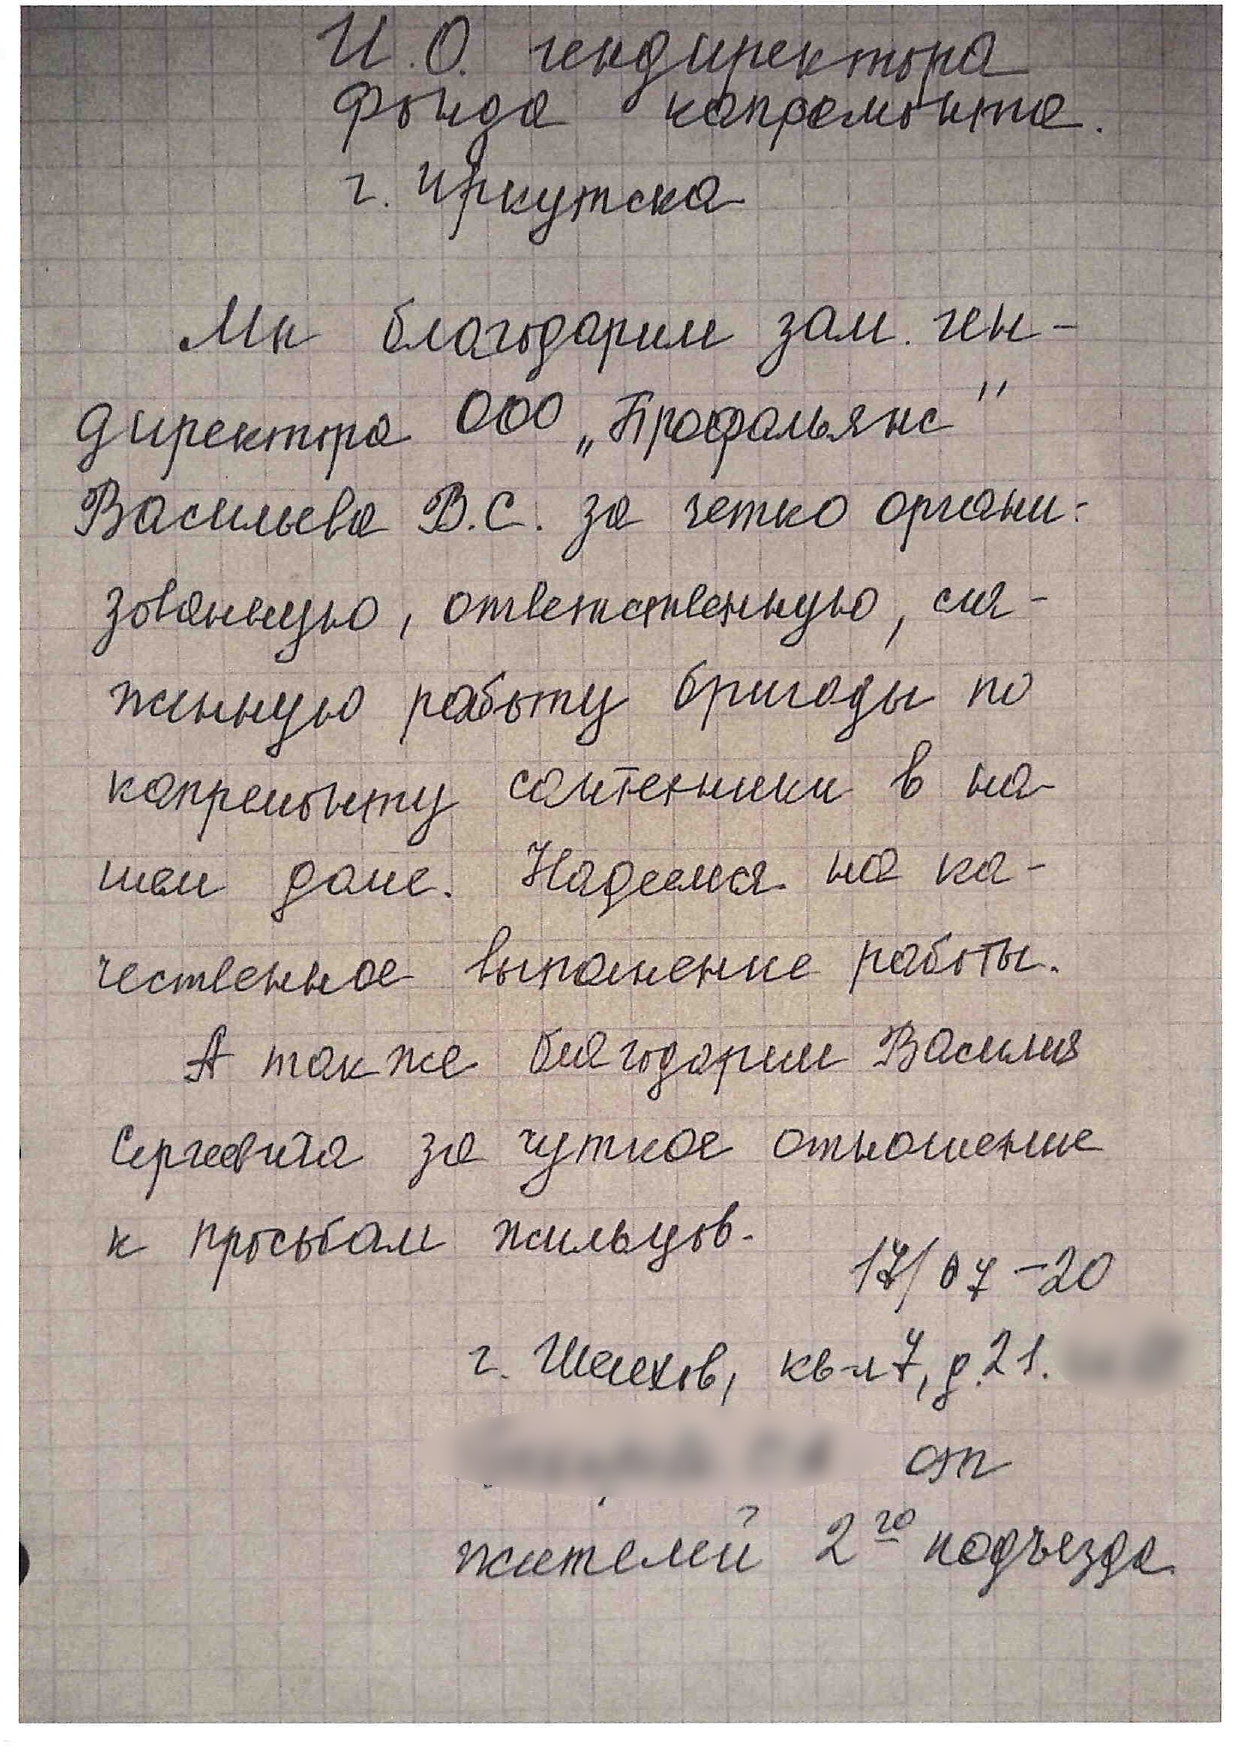 И.О. гендиректора
Фонда капремонта.
г. Иркутска
Мы благодарим зам. ген-
директора ООО „Профальянс"
Васильева В.С. за четко органи-
зованную, ответственную, сла-
женную работу бригады по
капремонту сантехники в на-
шем доме. Надеемся на ка-
чественное выполнение работы.
А также благодарим Василия
Сергеевича за чуткое отношение
к просьбам жильцов.
17/07-20
г. Шелехов, кв-л 7, д.21.
от
жителей 2го подъезда